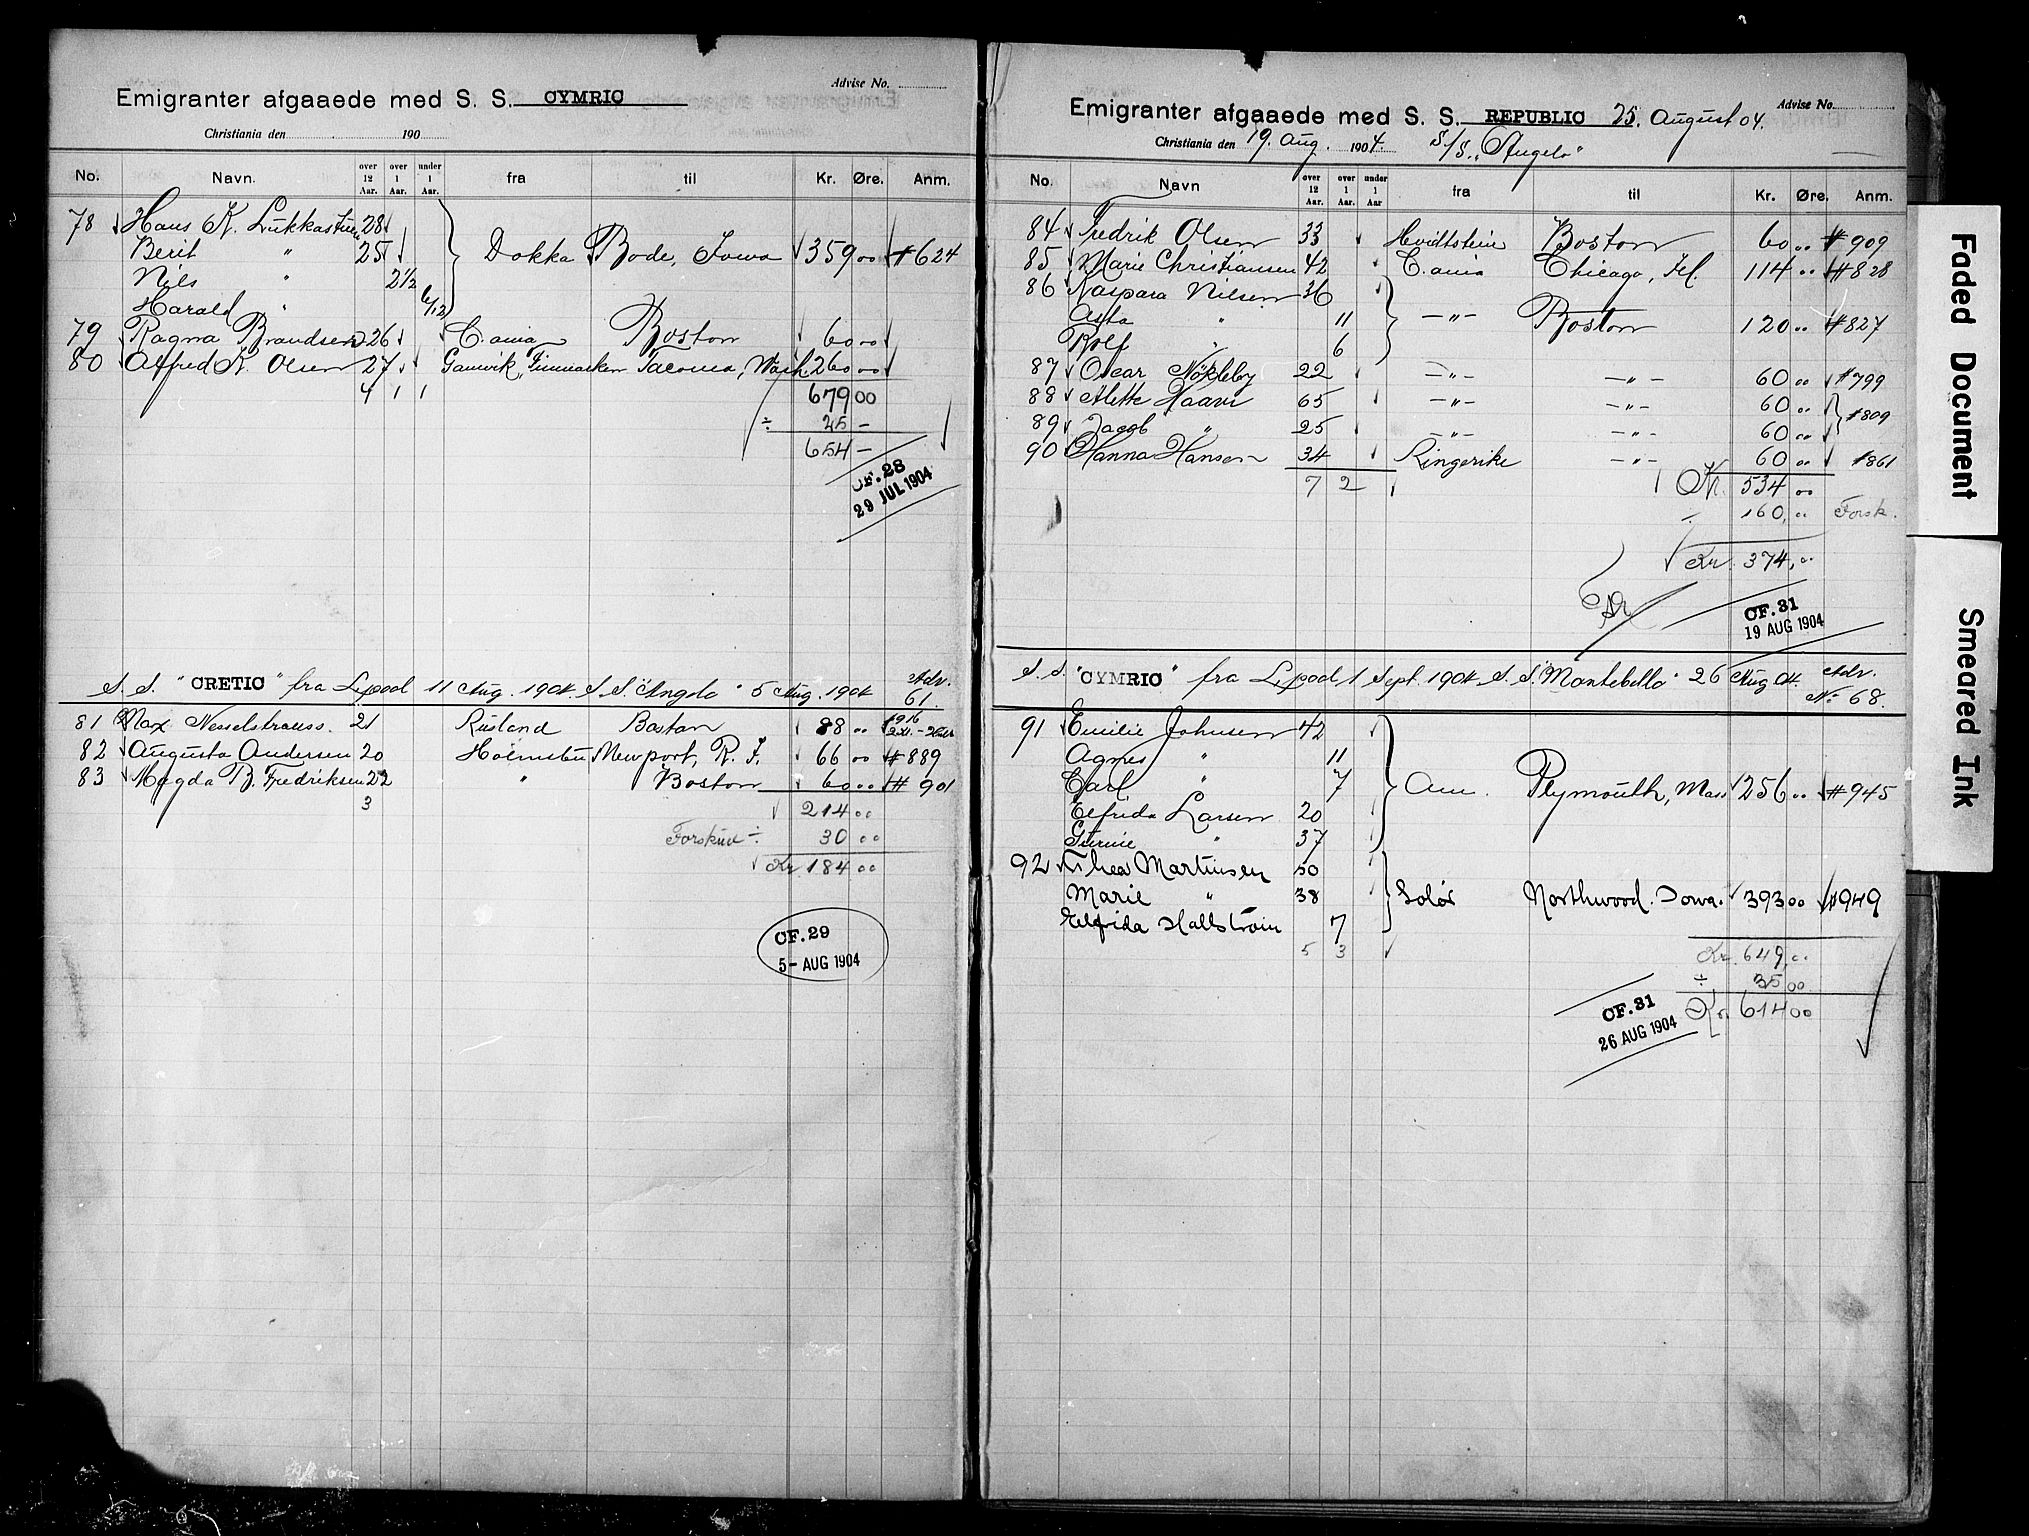 Advise No.
Emigranter afgaaede med S. S. CYMRIC
Christiania den 190
No. Navn. over 12 Aar. over 1 Aar. under 1 Aar. fra til Kr. Øre. Anm.
78 Hans K. Lukkastuen 28
Berit " 25 Dokka Bode, Iowa 359 00 # 624
Nils " 2 1/2
Harald " 6/12
79 Ragna Brandsen 26 C.ania Boston 60 00
80 Alfred N. Olsen 27 Gamvik, Finmarken Tacoma, Wash. 260 00
4 1 1 679 00
÷ 25 —
654 —
CF. 28
29 JUL 1904
S. S. "CRETIC" fra Lpool 11 Aug. 1904 S.S. "Angelo" 5 Aug. 1904 Adv. 61.
81 Max Nesselstrauss. 21 Rusland Boston 88 00 #916
82 Augusta Andersen 20 Holmsbu Newport, R. I. 66 00 # 889
83 Magda B. Fredriksen 22 " Boston 60 00 # 901
3 214 00
Forskud ÷ 30 00
Kr. 184 00
CF. 29
5- AUG 1904
Advise No.
Emigranter afgaaede med S. S. REPUBLIC 25. August 04.
Christiania den 19. Aug. 1904. S/S. "Angelo"
No. Navn over 12 Aar. over 1 Aar. under 1 Aar fra til Kr. Øre. Anm.
84 Fredrik Olsen 33 Hvidtsteine Boston 60 00 # 909
85 Marie Christiansen 42 C.ania Chicago, Ill. 114 00 # 828
86 Kaspara Nilsen 36
Asta " 11 — " — Boston 120 00 # 827
Rolf " 6
87 Oscar Nökleby 22 — " — — " — 60 00 # 799
88 Alette Haave 65 — " — — " — 60 00
# 809
89 Jacob " 25 — " — — " — 60 00
90 Hanna Hansen 34 Ringerike — " — 60 00 # 861
7 2 Kr. 534 00
÷ 160 00 Forsk.
Kr. 374,00
CF. 31
19 AUG 1904
S. S. "CYMRIC" fra Lpool 1 Sept. 1904 S. S. "Montebello" 26 Aug 04. Adv. No 68.
91 Emilie Johnsen 42
Agnes " 11
Carl " 7 Plymouth, Mass 256 00 # 945
Elfrida Larsen 20
" 37
92 Thea Martinsen 50
Marie " 38 Solør Northwood. Iowa. 393 00 # 949
Elfrida Hallstrøm 7
5 3 Kr. 649,00
÷ 35 00
Kr. 614 00
CF. 31
26 AUG 1904
Faded Document
Smeared Ink